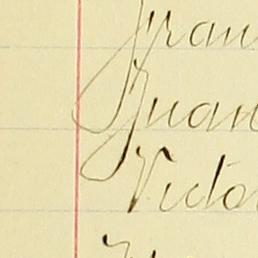 Fran
Juan
Victo